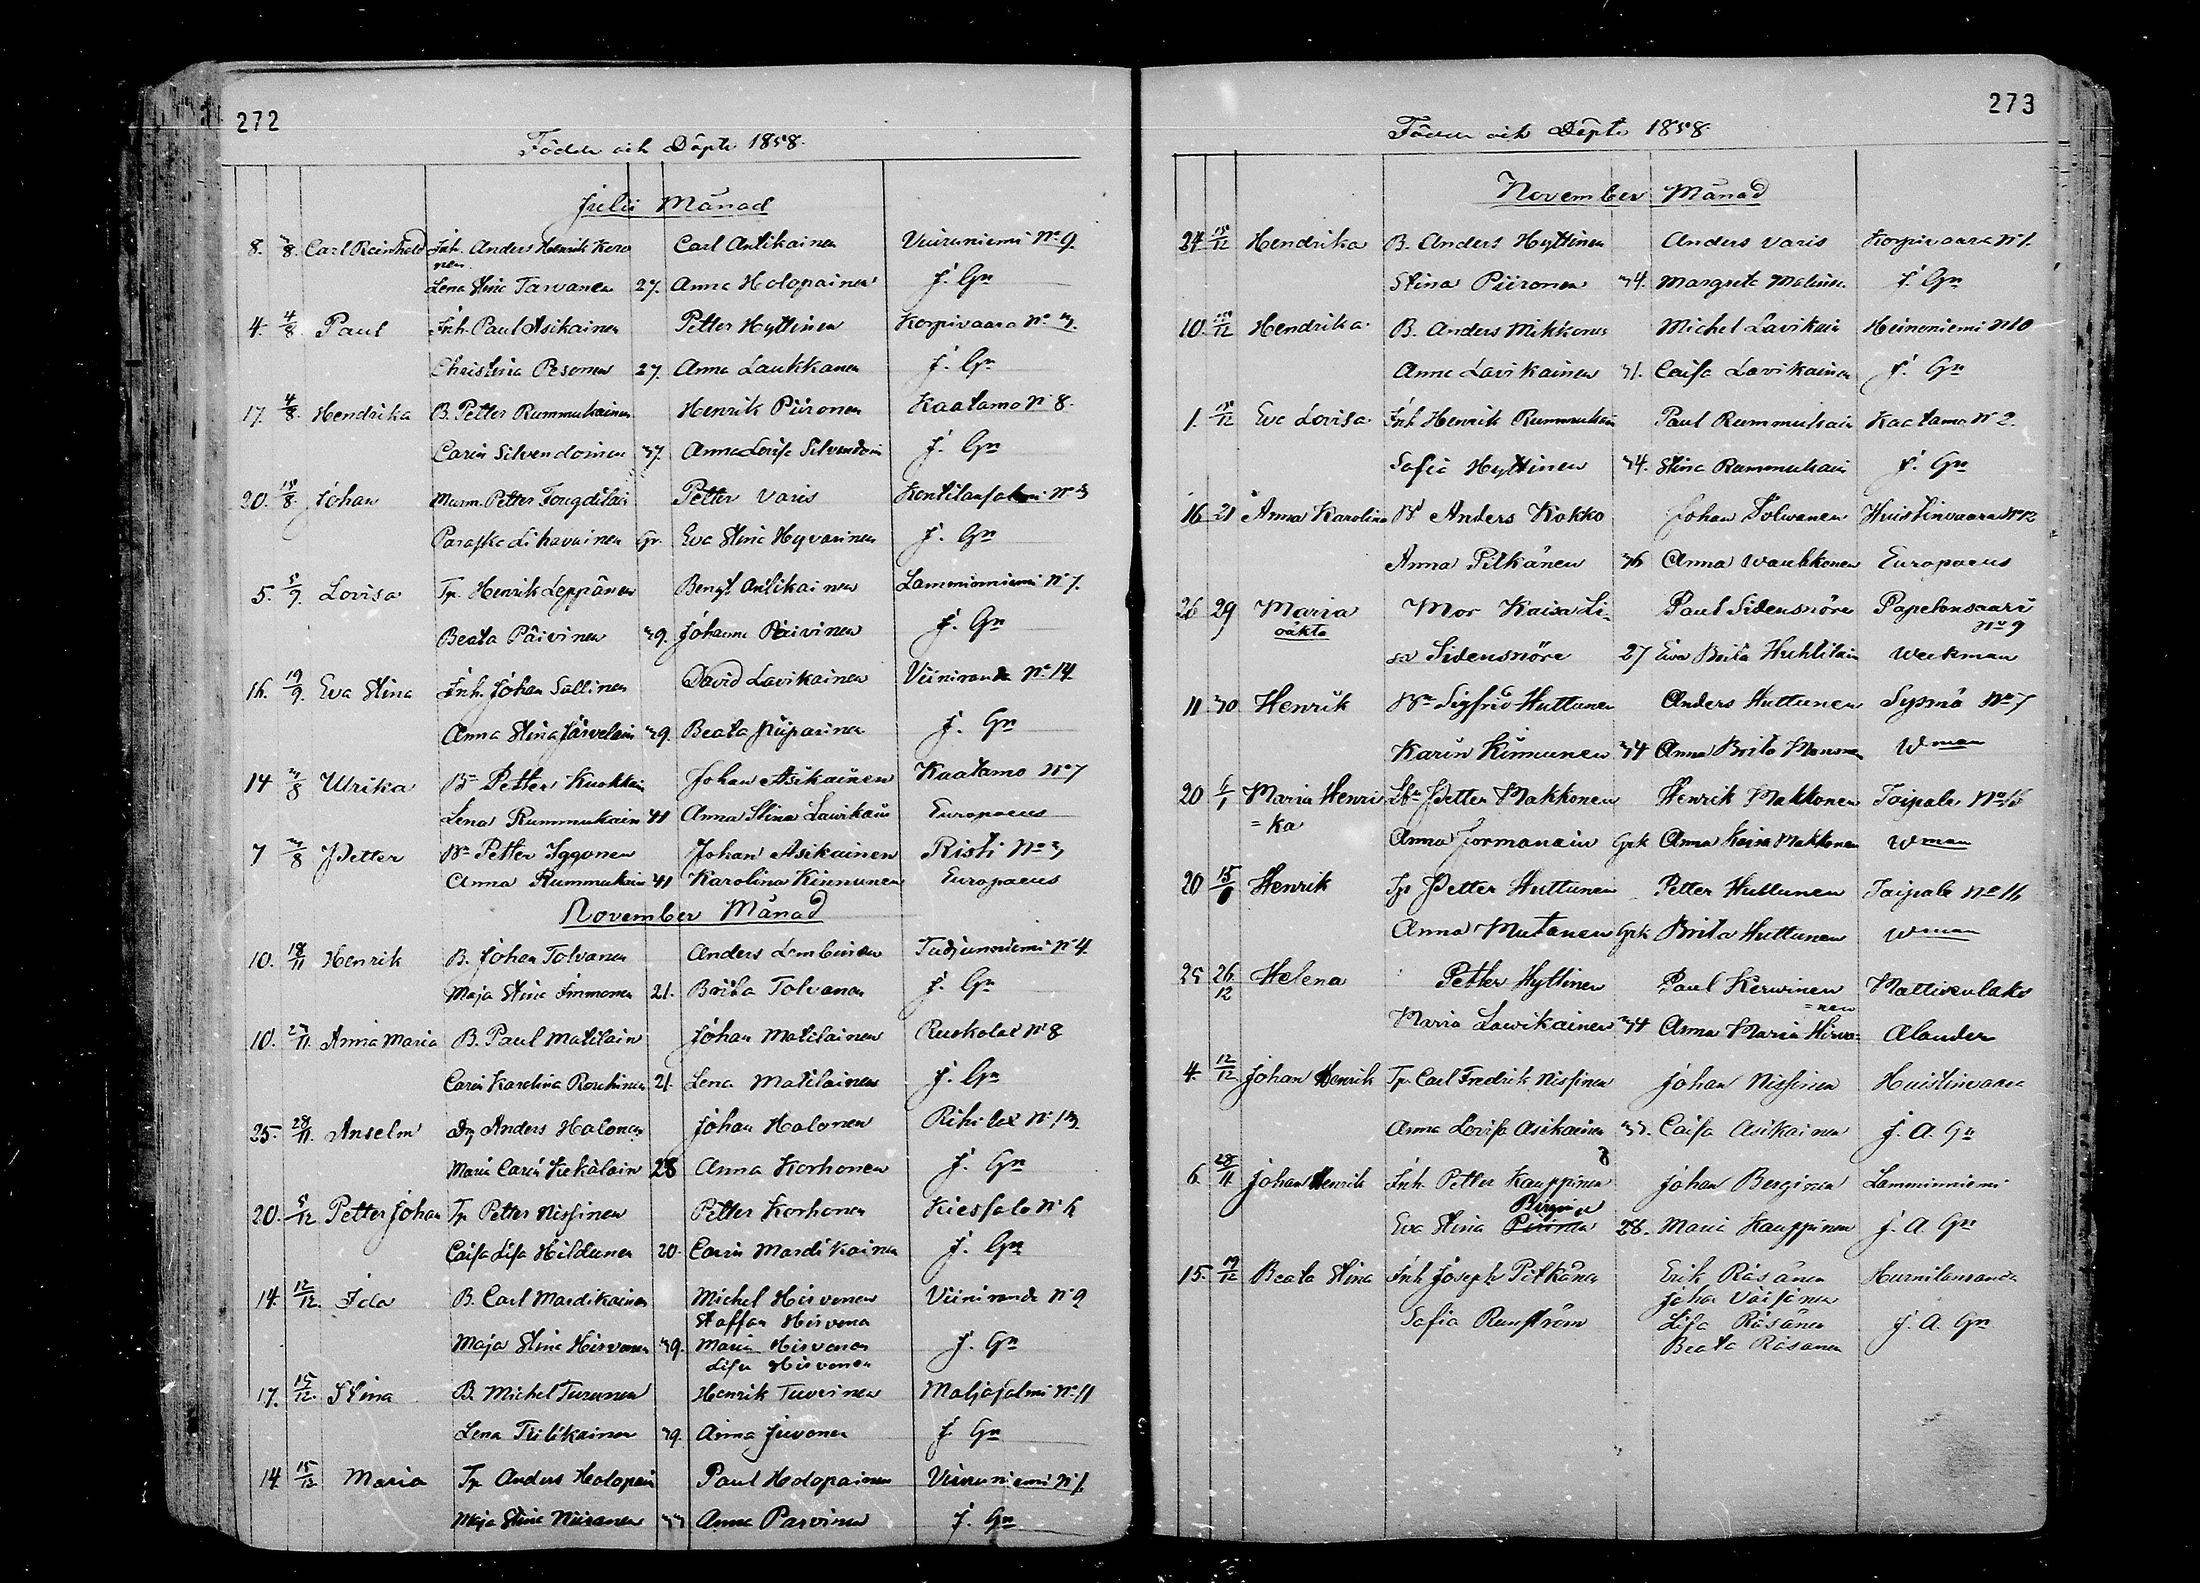 272
Födde och Döpte 1858.
Julii Månad
8. 3/8. Carl Reinhold Inh. Anders Henrik Koro Carl Antikainen Viiruniemi No 9.
nen
Lena Stina Tarvanen 27. Anna Holopainen J. Gn
4. 4/8. Paul Inh. Paul Asikainen Petter Hyttinen Korpivaara No 3.
Christina Pesonen 27. Anna Laukkanen J. Gn
17. 4/8. Hendrika B. Petter Rummukainen Henrik Piironen Kaatamo N 8.
Carin Silvendoinen 37. Anna Lovisa Silvendoin J. Gn
20. 15/8 Johan Petter Varis Kontilansalmi No 3
Eva Stina Hyvärinen J. Gn
5. 5/9. Lovisa Tp. Henrik Leppänen Bengt Antikainen Lamminniemi N 7.
Beata Päivinen 39. Johanna Päivinen J. Gn
16. 19/9. Eva Stina Inh. Johan Sallinen David Lavikainen Viiniranda No 14.
Anna Stina Järvelain 39. Beata Piiparinen J. Gn
14 3/8 Ulrika Bn Petter Kuokkain Johan Asikainen Kaatamo No 7
Lena Rummukain 41 Anna Stina Lavikain Europaeus
7 3/8 Petter Bn Petter Iggonen Johan Asikainen Risti No 3
Anna Rummukain 41 Karolina Kinnunen Europaeus
November Månad
10. 18/11 Henrik B. Johan Tolvanen Anders Lembinen Tutjunniemi N 4.
Maja Stina Immonen 21. Brita Tolvanen J. Gn
10. 23/11. Anna Maria B. Paul Matilain Johan Matilainen Ruokolax N 8
Carin Karolina 21. Lena Matilainen J. Gn
25. 28/11. Anselm Dg Anders Halonen Johan Halonen Rihilax N 13.
Maria Carin Kekälain 28 Anna Korhonen J. Gn
20. 5/12 Petter Johan Tp Petter Nissinen Petter Korhonen Kiessalo N 6
Caisa Lisa Hildunen 20. Carin Mardikainen J. Gn
14. 12/12. Ida B. Carl Mardikainen Michel Hirvonen Viiniranda N 9
Staffan Hirvonen
Maja Stina Hirvonen 39. Maria Hirvonen J. Gn
Lisa Hirvonen
17. 15/12. Stina B. Michel Turunen Henrik Tuvrinen Maljasalmi N 11
Lena Tiilikainen 39. Anna Juvonen J. Gn
14. 15/12 Maria Tp Anders Holopain Paul Holopainen Viiruniemi N 1.
Maja Stina Niiranen 33 Anna Parvinen J. Gn
273
Födde och Döpte 1858.
November Månad
24. 15/12 Hendrika B. Anders Hyttinen Anders Varis Korpivaara N 1.
Stina Piironen 34. Margreta Malinen J. Gn
10. 15/12 Hendrika B. Anders Mikkonen Michel Lavikain Heinoniemi N 10
Anna Lavikainen 31. Caisa Lavikainen J. Gn
1. 15/12 Eva Lovisa Inh Henrik Rummukain Paul Rummukain Kaatamo N 2.
Sofia Hyttinen 34. Stina Rummukain J. Gn
16 21 Anna Karolina Bd Anders Kokko Johan Tolwanen Huistinvaara No 12
Anna Pitkänen 36 Anna Waukkonen Europaeus
26 29 Maria Mor Kaisa Li- Paul Sidensnöre Papelonsaari
oäkta No 9
sa Sidensnöre 27 Eva Brita Huhtilain Weckman
11 30 Henrik Bn Sigfrid Huttunen Anders Huttunen Sysmä No 7
Karin Kinnunen 34 Anna Brita Wman
20 6/1 Maria Henri Lbn Petter Makkonen Henrik Makkonen Taipale No 16
=ka
Anna Jormanain Grk Anna Kaisa Makkonen Wman
20 Henrik Tp Petter Huttunen Petter Huttunen Taipale No 16
Anna Mutanen Grk Brita Huttunen Wman
25 26/12 Helena Petter Hyttinen Paul Kerwinen Mattisenlaks
=nen
Maria Lawikainen 34 Anna Maria Hirwo= Alander
4. 12/12 Johan Henrik Tp. Carl Fredrik Nissinen Johan Nissinen Huistinvaara
Anna Lovisa Asikainen 33. Caisa Asikainen J. A. Gn
6. 28/11 Johan Henrik Inh. Petter Kauppinen Johan Berginen Lamminniemi
Eva Stina 28. Maria Kauppinen J. A. Gn
15. 19/12 Beata Stina Inh Joseph Pitkänen Erik Räsänen Hurnilanranda
Johan Väisänen
Sofia Lisa Räsänen J. A. Gn
Beata Räsänen